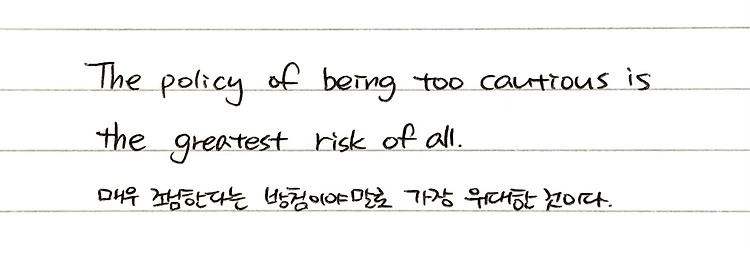 The policy of being too cautious is
the greatest risk of all.
매우 조심한다는 방침이야말로 가장 위대한 것이다.